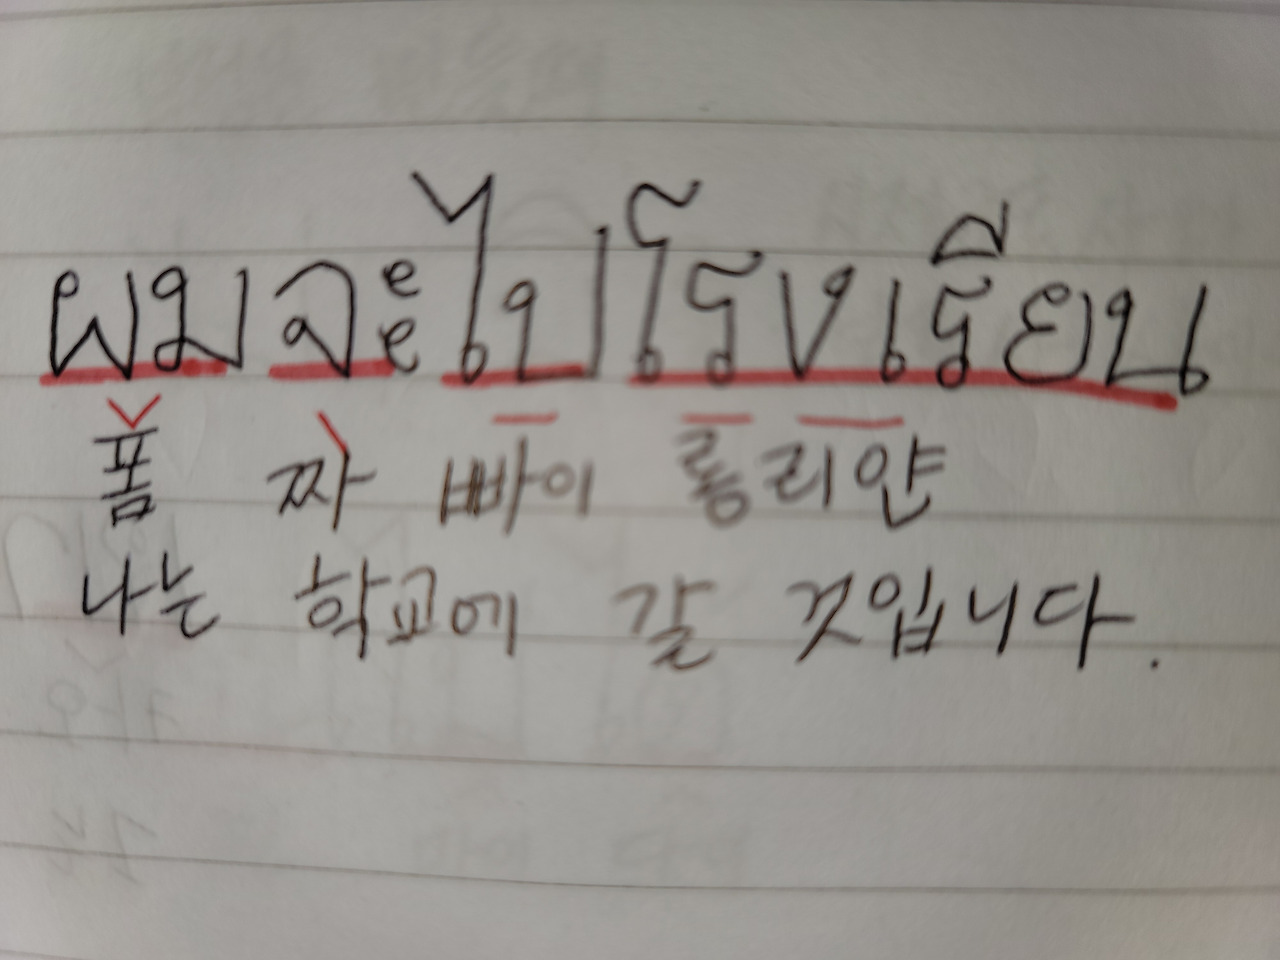 ผมจะไปโรงเรียน
폼 짜 빠이 롱리얀
나는 학교에 갈 것입니다.